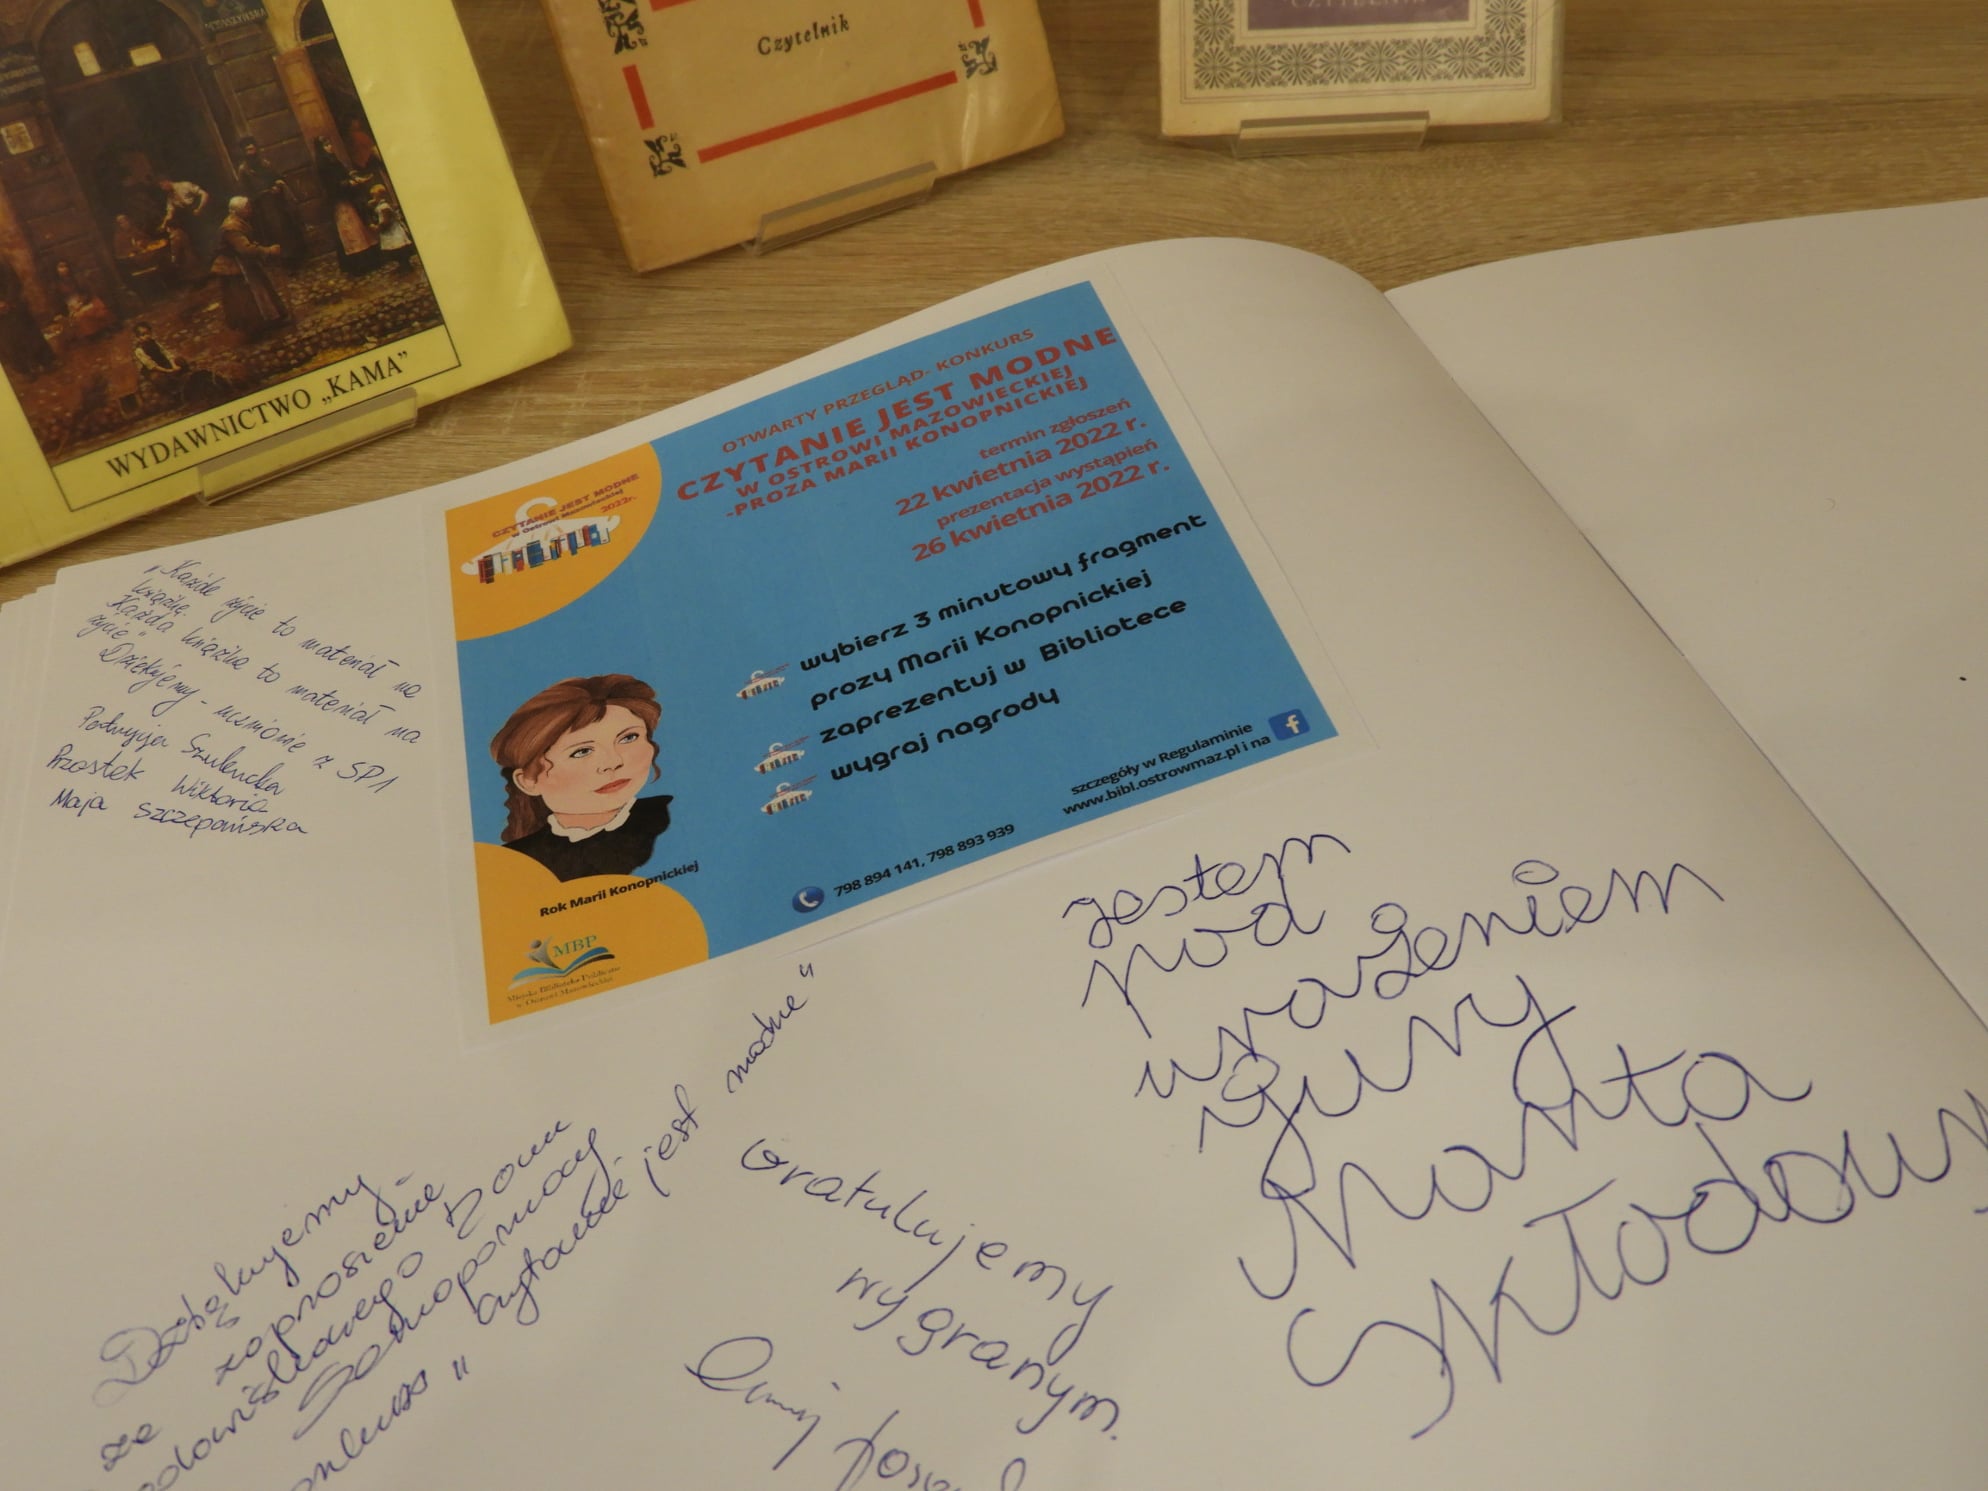 WYDAWNICTWO „KAMA”
Czytelnik
CZYTELNIK
OTWARTY PRZEGLĄD- KONKURS
CZYTANIE JEST MODNE
W OSTROWI MAZOWIECKIEJ
-PROZA MARII KONOPNICKIEJ
termin zgłoszeń
22 kwietnia 2022 r.
prezentacja wystąpień
26 kwietnia 2022 r.
CZYTANIE JEST MODNE
w Ostrowi Mazowieckiej
2022r.
wybierz 3 minutowy fragment
prozy Marii Konopnickiej
zaprezentuj w Bibliotece
wygraj nagrody
szczegóły w Regulaminie
www.bibl.ostrowmaz.pl i na f
798 894 141, 798 893 939
Rok Marii Konopnickiej
MBP
Miejska Biblioteka Publiczna
w Ostrowi Mazowieckiej
„Każde życie to materiał na
książkę.
Każda książka to materiał na
życie"
Dziękujemy - uczniowie z SP1
Szulencka
Prostek Wiktoria
Maja Szczepańska
Jestem
pod
wrażeniem
Marta
Dziękujemy
za zaproszenie
Dom
Samopomocy
„Czytanie jest modne"
Gratulujemy
wygranym.